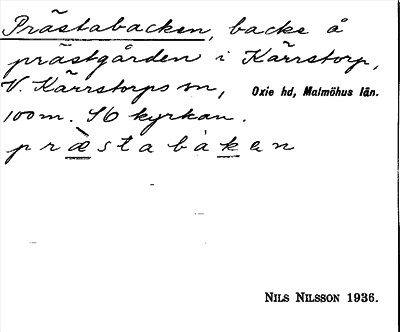 Prästabacken, backe å
prästgården i Kärrstorp,
V. Kärrstorps sn, Oxie hd, Malmöhus län.
100 m. SO kyrkan.
præ̀stabàken
NILS NILSSON 1936.